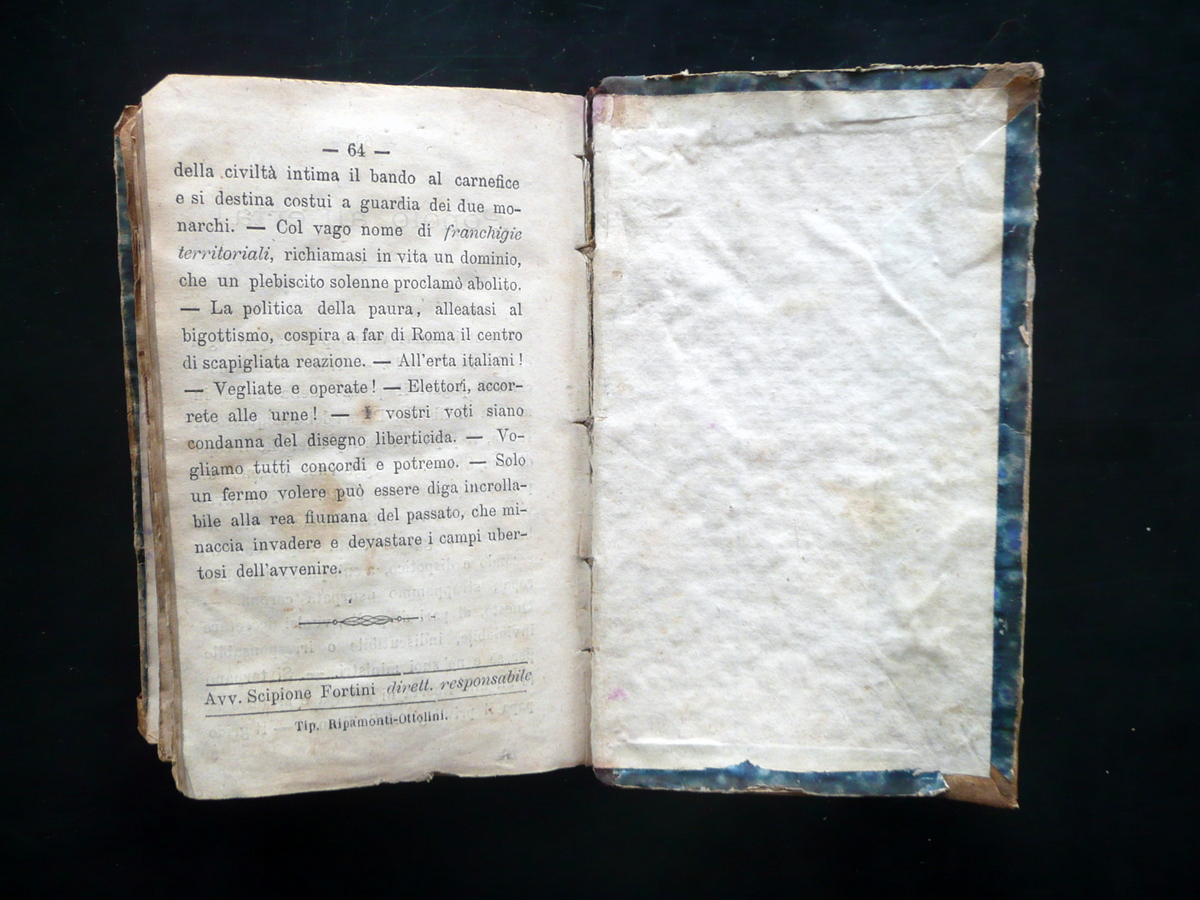 — 64 —
della civiltà intima il bando al carnefice
e si destina costui a guardia dei due mo-
narchi. — Col vago nome di franchigie
territoriali, richiamasi in vita un dominio,
che un plebiscito solenne proclamò abolito.
— La politica della paura, alleatasi al
bigottismo, cospira a far di Roma il centro
di scapigliata reazione. — All'erta italiani!
— Vegliate e operate! — Elettori, accor-
rete alle urne! — I vostri voti siano
condanna del disegno liberticida. — Vo-
gliamo tutti concordi e potremo. — Solo
un fermo volere può essere diga incrolla-
bile alla rea fiumana del passato, che mi-
naccia invadere e devastare i campi uber-
tosi dell'avvenire.
Avv. Scipione Fortini dirett. responsabile
Tip. Ripamonti-Ottolini.